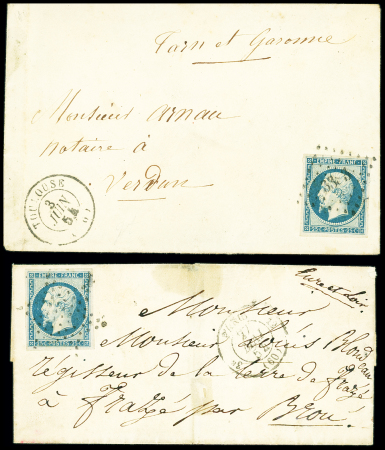 Tarn et Garonne
Monsieur Arnau
notaire à
Verdun
TOULOUSE
3
JUIN
54
EMPIRE FRANC
25C POSTES 25C
EMPIRE FRANC
25C POSTES 25C
Eure et Loir
Monsieur
Monsieur Louis Blondeau
régisseur de la terre de Frazé
à Frazé par Brou